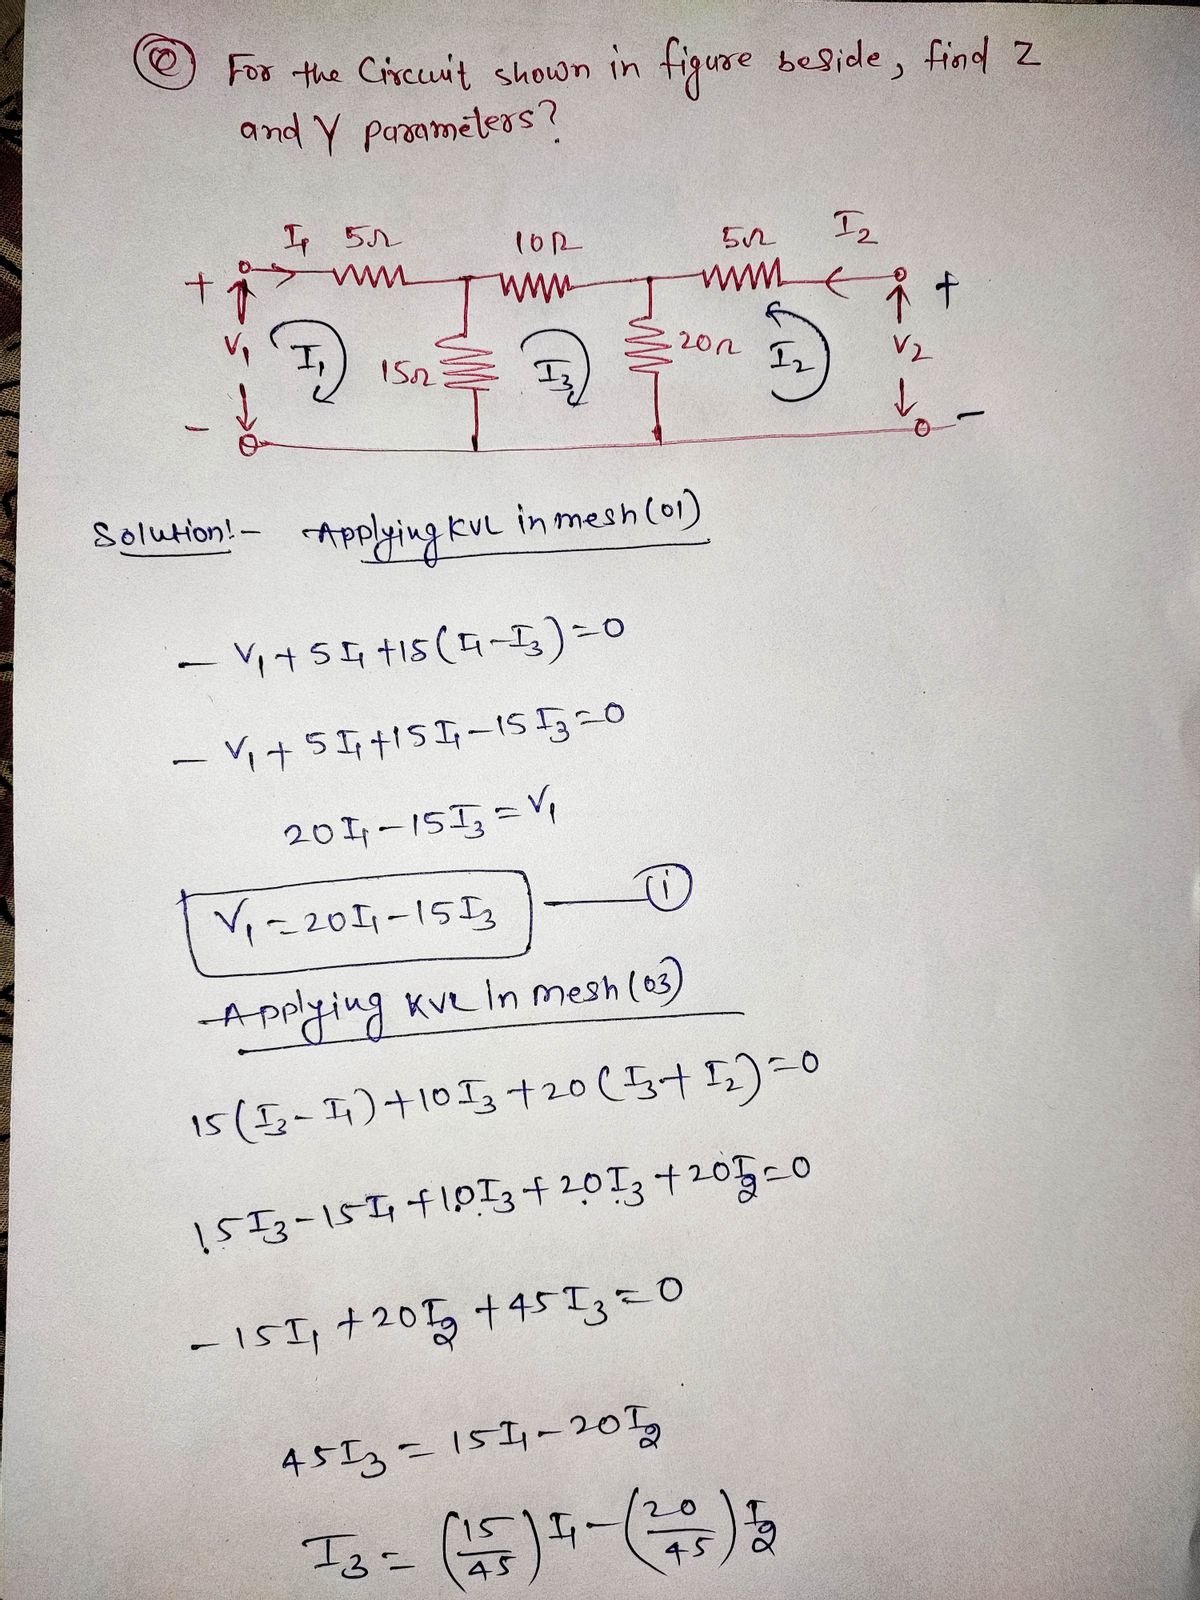 Q For the Circuit shown in figure beside, find Z
and Y parameters?
I₁ 5Ω 10Ω 5Ω I₂
+ +
V₁ I₁ 15Ω I₃ 20Ω I₂ V₂
- -
Solution:- Applying KVL in mesh (01)
- V₁ + 5I₁ + 15(I₁ - I₃) = 0
- V₁ + 5I₁ + 15I₁ - 15I₃ = 0
20I₁ - 15I₃ = V₁
V₁ = 20I₁ - 15I₃ — (i)
Applying KVL in mesh (03)
15(I₃ - I₁) + 10I₃ + 20(I₃ + I₂) = 0
15I₃ - 15I₁ + 10I₃ + 20I₃ + 20I₂ = 0
- 15I₁ + 20I₂ + 45I₃ = 0
45I₃ = 15I₁ - 20I₂
I₃ = (15/45) I₁ - (20/45) I₂